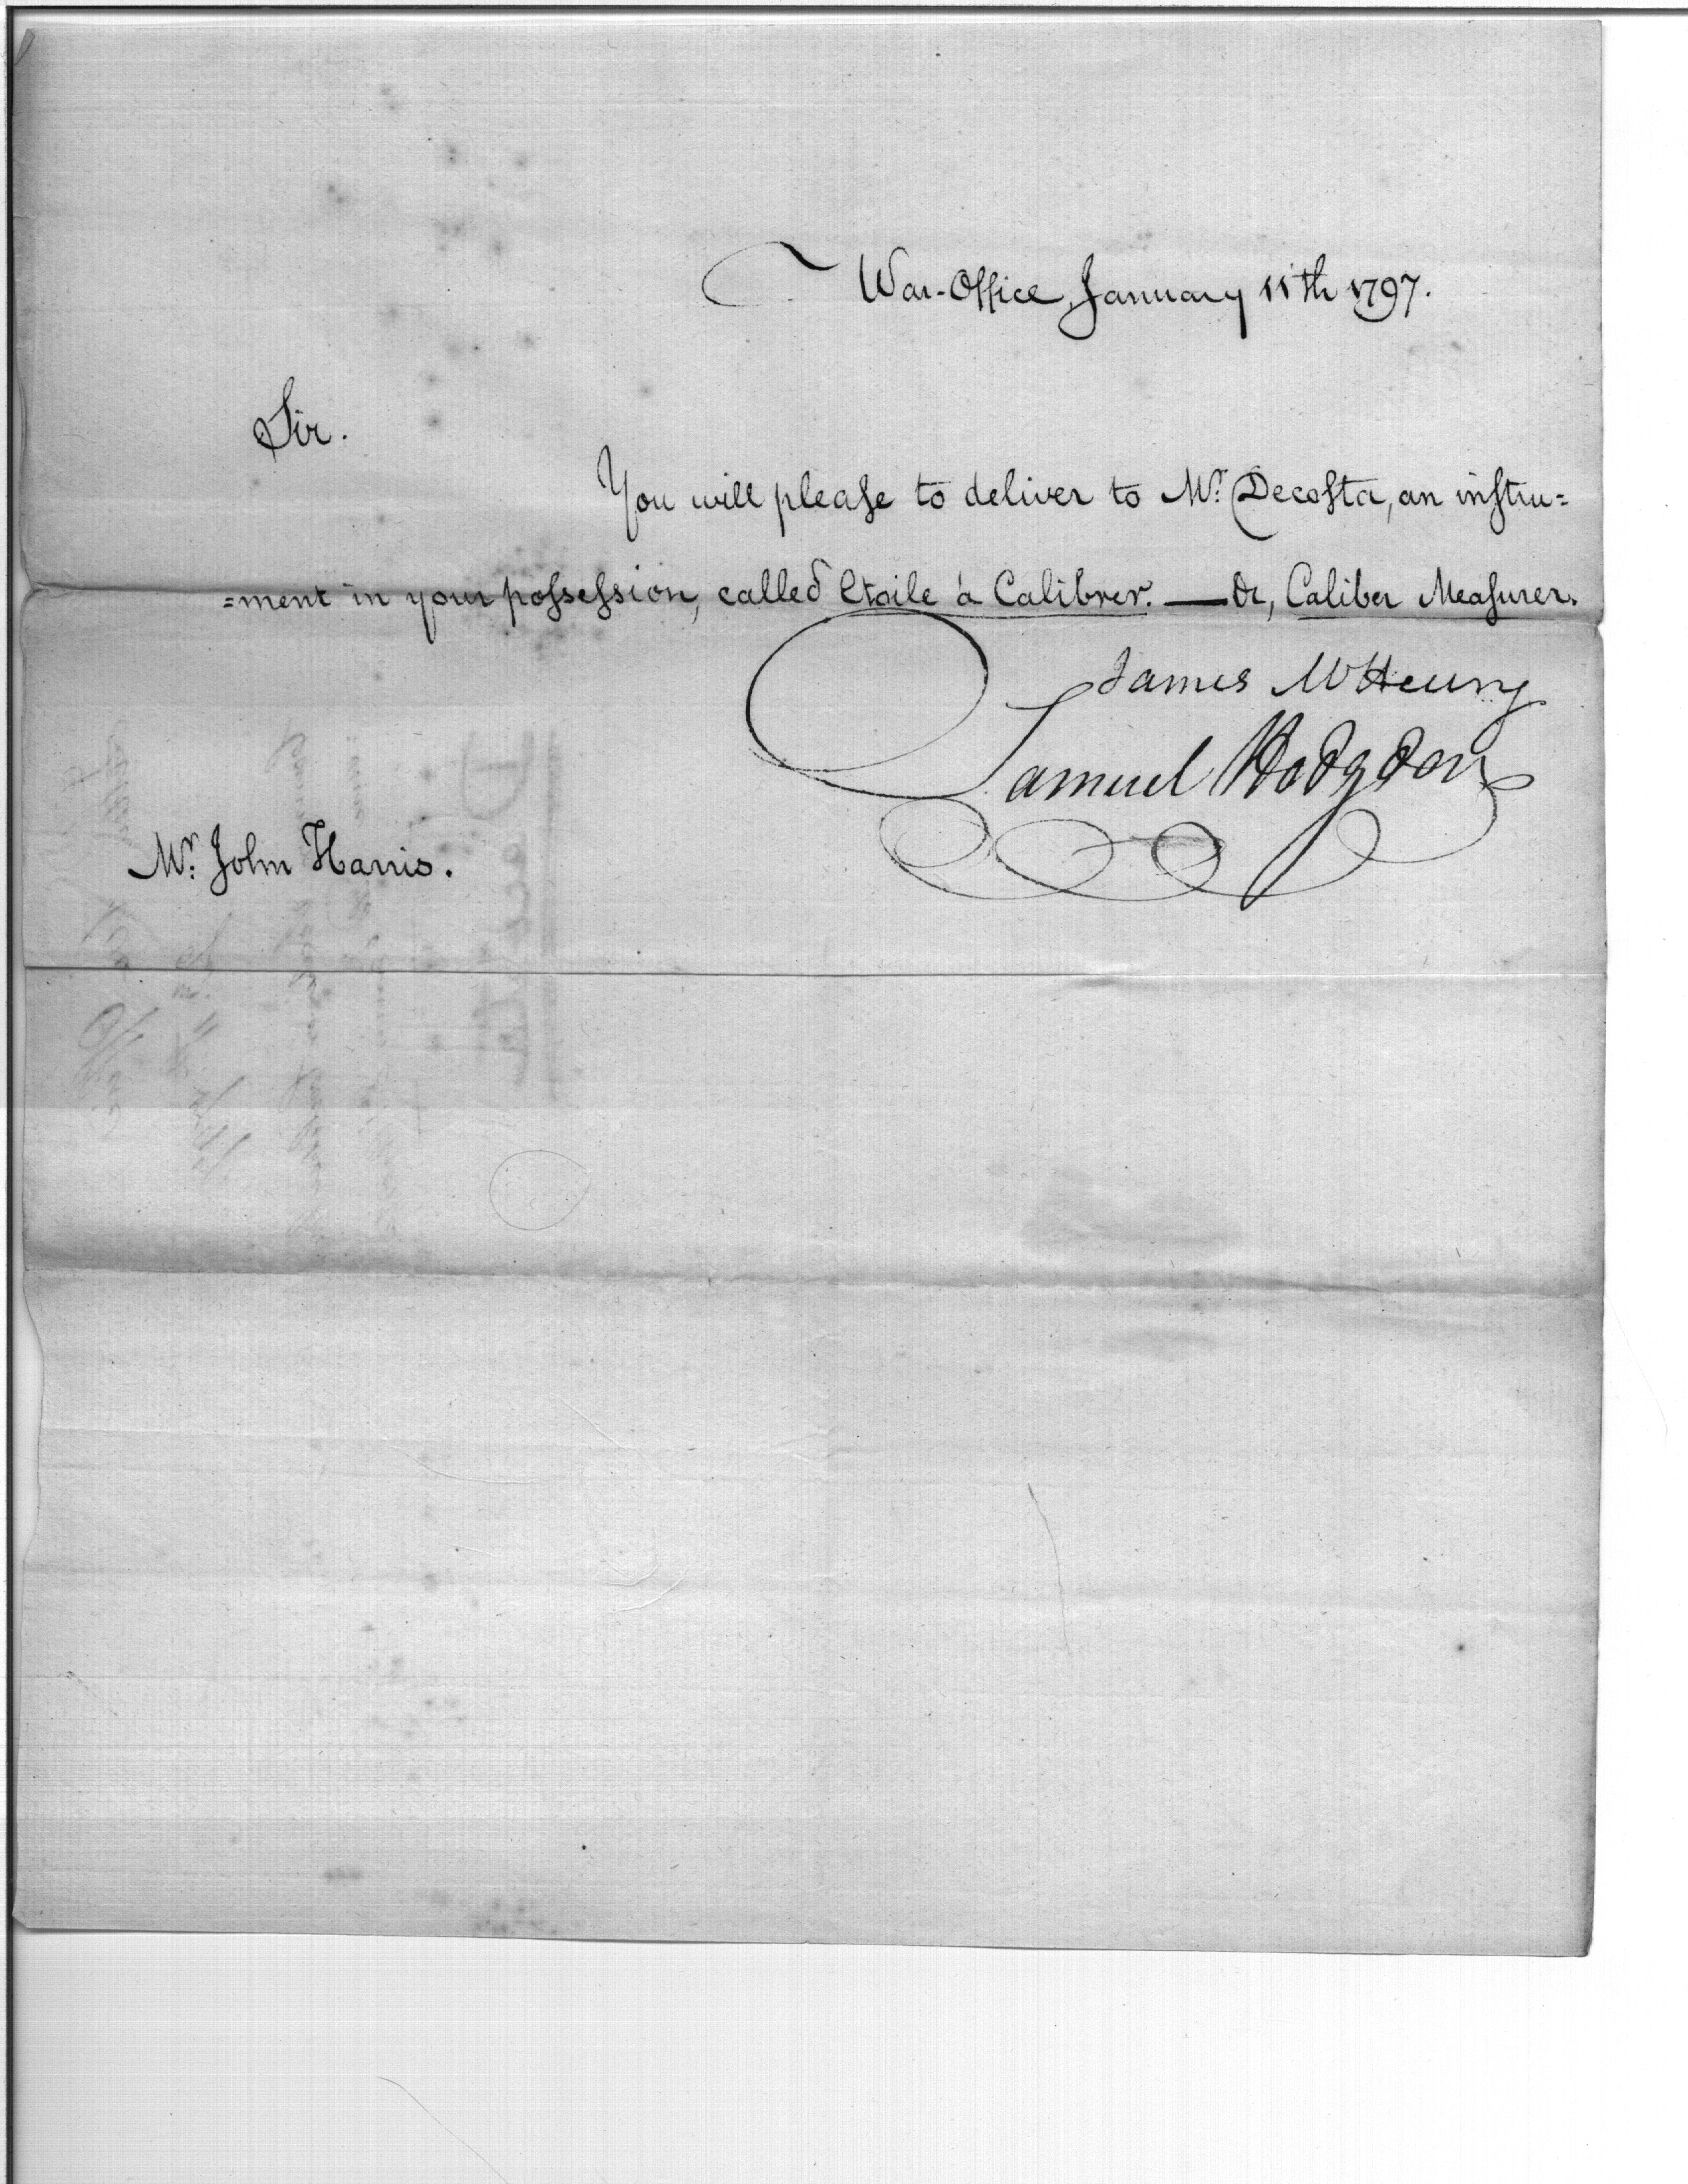 War-Office, January 11th 1797.
Sir.
You will please to deliver to Mr. Decosta, an instru=
=ment in your possession, called Etoile à Calibrer. — Or, Caliber Measurer.
James McHenry
Samuel Hodgdon
Mr. John Harris.